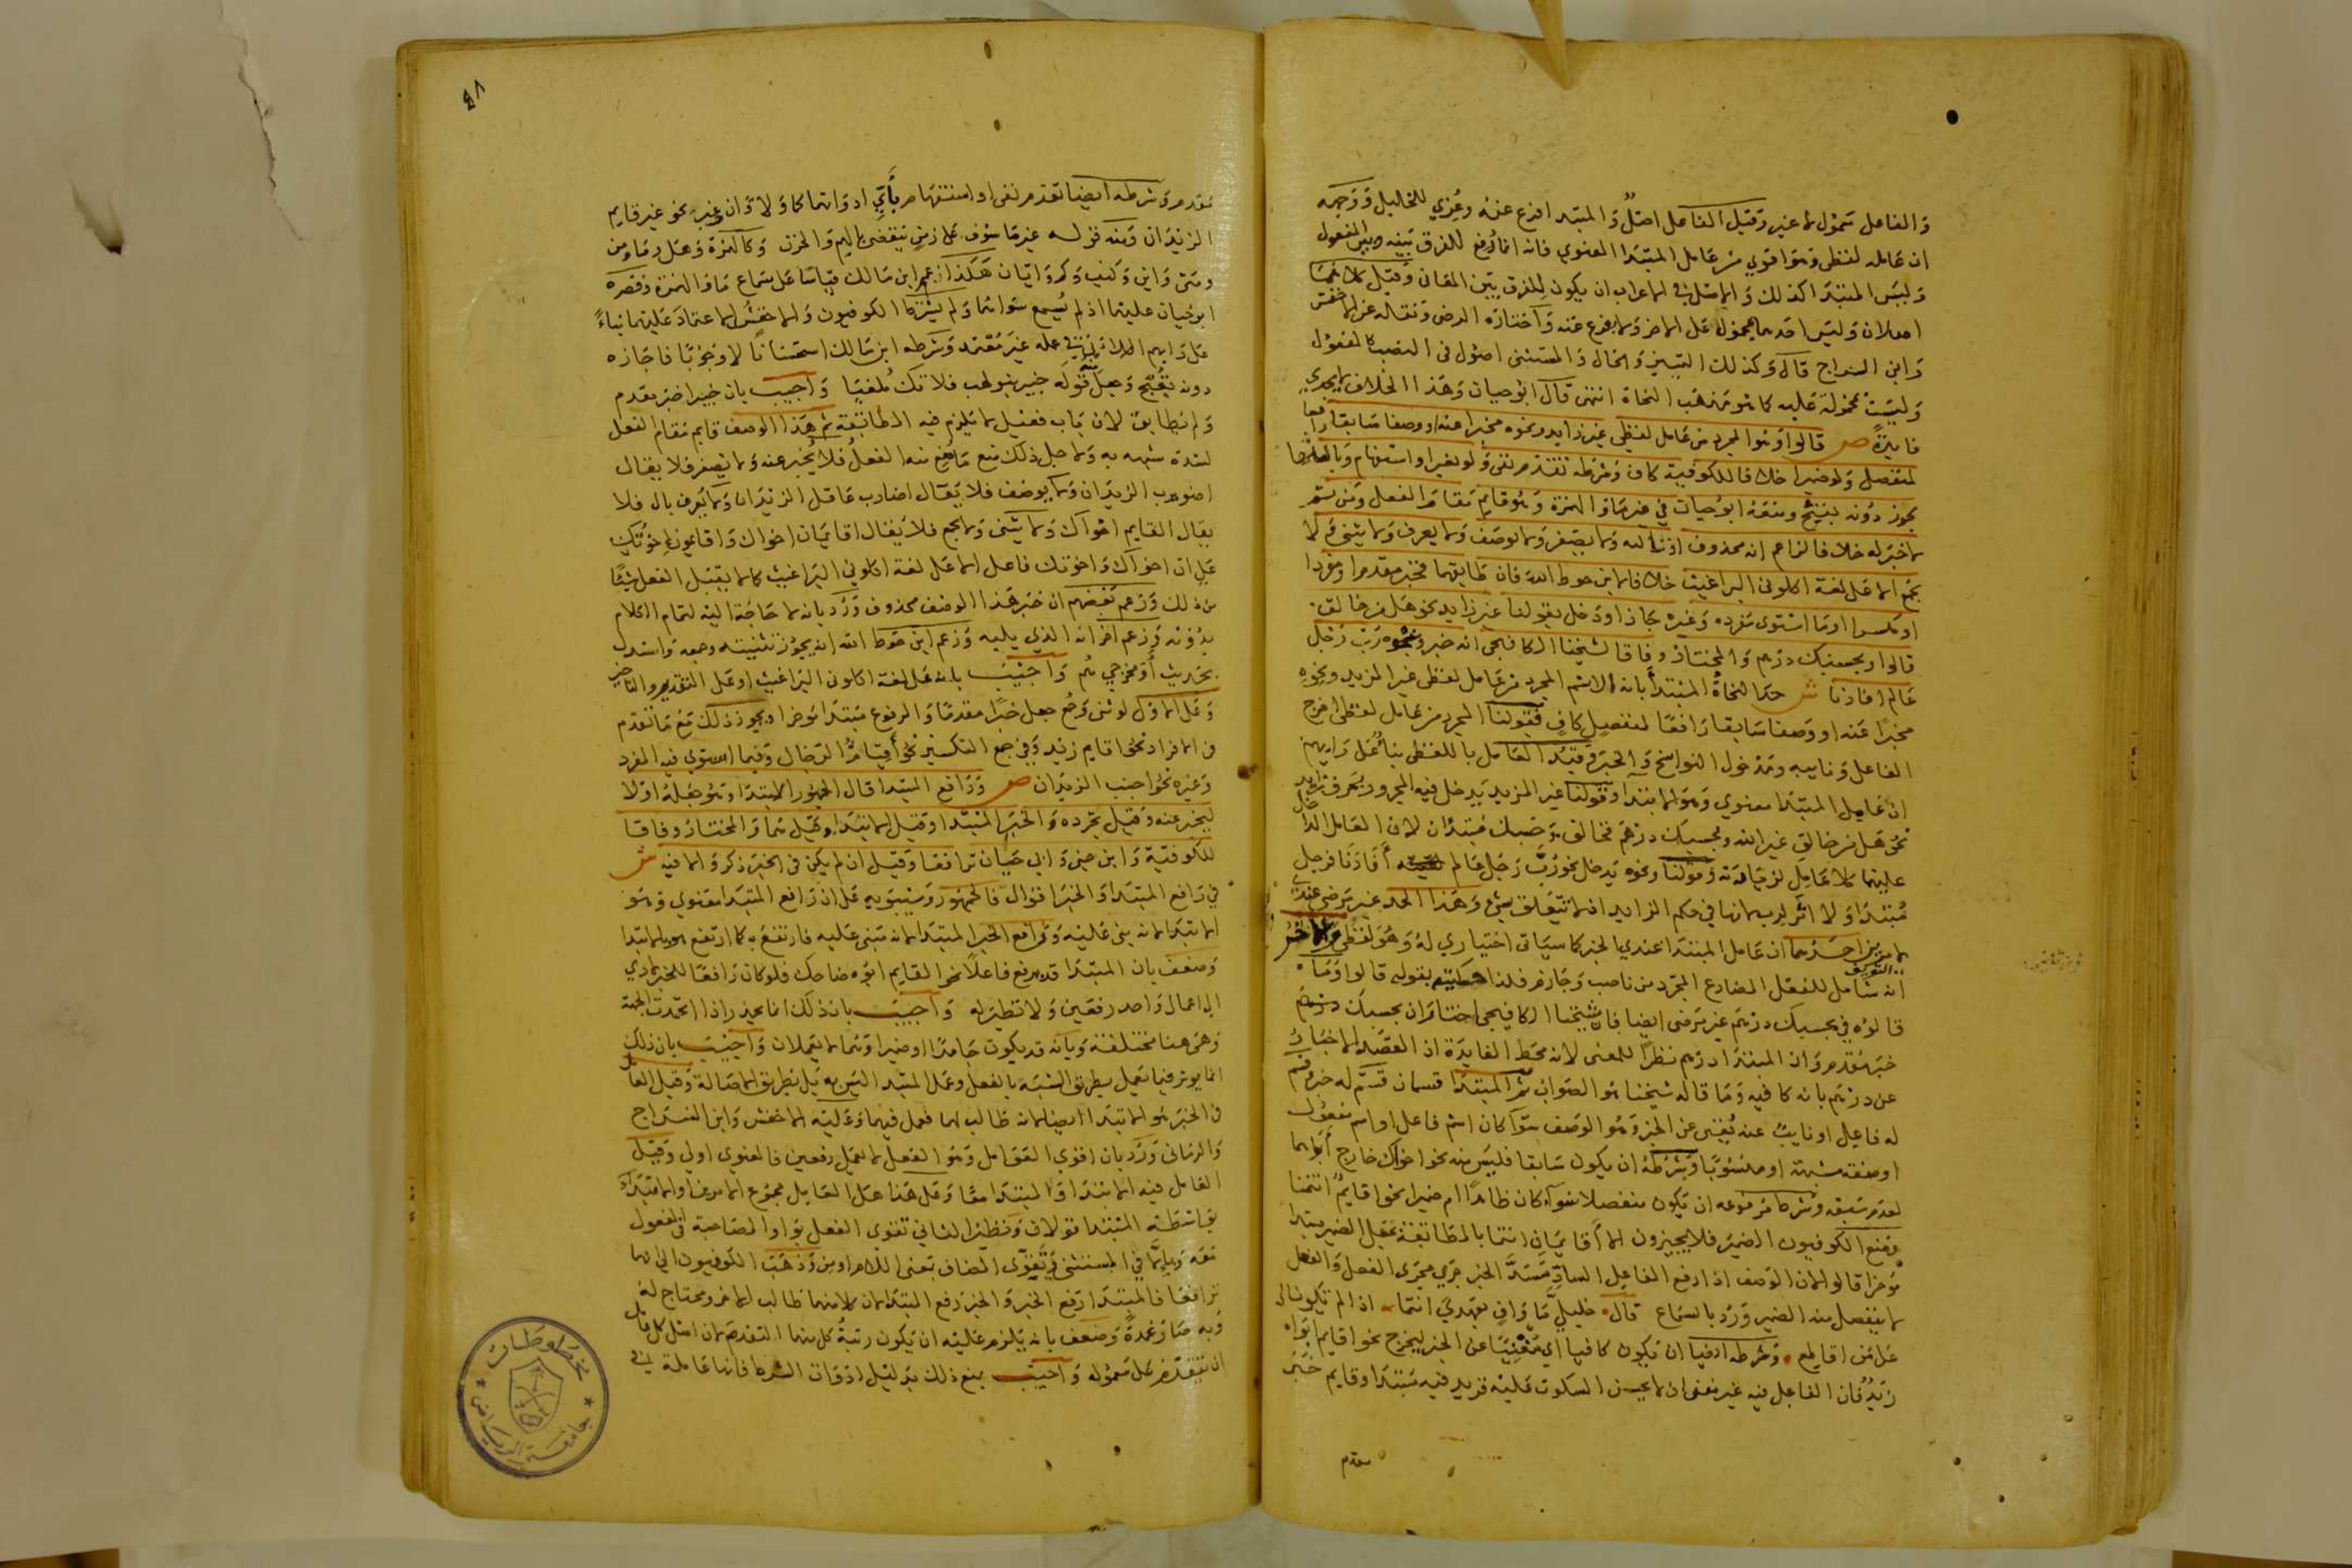 والفاعل محمول لما غيره وقيل الفاعل اصل والمبتدا فرع عنه وعزي للخليل ووجهه
ان عامله لفظي وهو اقوي من عامل المبتدا المعنوي فانه انما رفع للفرق بينه وبين المفعول
وليس المبتدا كذلك والاصل في الاعراب ان يكون للفرق بين المعاني وقيل كلاهما
اصلان وليس احدهما بمحمول على الاخر ولا بفرع عنه واختاره الرضي ونقله عن الاخفش
وابن السراج قال وكذلك التمييز والحال والمستثنى اصول في النصب كالمفعول
وليست محمولة عليه كما هو مذهب النحاة انتهى قال ابو حيان وهذا الخلاف لا يجدي
فايدة ص قالوا وهو المجرد من عامل لفظي غير زايد ونحوه مخبرا عنه او وصفا سابقا رافعا
لمنفصل ولو ضميرا خلافا للكوفية كاف وشرطه تقدم نفي ولو بغير او استفهام وبالعكس
يجوز دونه بقبح ومنعه ابو حيان في غير ما والهمزة وهو قايم مقام الفعل ومن ثم
لا خبر له خلافا لزاعم انه محذوف او تاليه ولا يصغر ولا يوصف ولا يعرف ولا يثنى ولا
يجمع الا على لغة اكلوني البراغيث خلافا لابن حوط الله فان طابقهما فخبر مقدم او مفردا
او مكسرا او ما استوى مفرده وغيره جازا ودخل بقولنا غير زايد نحو هل من خالق
قالوا وبحسبك درهم والمختار وفاقا لشيخنا الكافيجي انه خبر ونحوه رب رجل
عالم افادنا ش حد النحاة المبتدا بانه الاسم المجرد من عامل لفظي غير المزيد ونحوه
مخبرا عنه او وصفا سابقا رافعا لمنفصل كاف فقولنا المجرد من عامل لفظي اخرج
الفاعل ونايبه ومدخول النواسخ والخبر وقيد العامل باللفظي بناء على رايهم
ان عامل المبتدا معنوي وهو الابتدا وقولنا غير المزيد يدخل فيه المجرور بحرف زايد
نحو هل من خالق غير الله وبحسبك درهم فخالق وحسبك مبتدان لان العامل الداخل
عليهما كلا عامل لزيادته وقولنا ونحوه يدخل نحو رب رجل عالم افادنا فرجل
مبتدا ولا اثر لرب لانها في حكم الزايد اذ لا تتعلق بشي وهذا الحد غير مرضي عندي
لامرين احدهما ان عامل المبتدا عندي الخبر كما سياتي اختياري له وهو لفظي والاخر
انه شامل للفعل المضارع المجرد من ناصب وجازم فلذا حكيته بقولي قالوا وما
قالوه في بحسبك درهم غير مرضي ايضا فان شيخنا الكافيجي اختار ان بحسبك
خبر مقدم وان المبتدا درهم نظرا للمعنى لانه محط الفايدة اذ القصد الاخبار
عن درهم بانه كافيه وما قاله شيخنا هو الصواب ثم المبتدا قسمان قسم له خبر وقسم
له فاعل او نايب عنه يغني عن الخبر وهو الوصف سوا كان اسم فاعل او اسم مفعول
او صفة مشبهة او منسوبا وشرطه ان يكون سابقا فليس منه نحو اخواك خارج ابوهما
لعدم سبقه وشرط مرفوعه ان يكون منفصلا سوا كان ظاهرا ام ضميرا نحو اقايم انتما
ومنع الكوفيون الضمير فلا يجيزون الا اقايمان انتما بالمطابقة بجعل الضمير مبتدا
موخرا قالوا لان الوصف اذا رفع الفاعل الساد مسد الخبر جرى مجرى الفعل والفعل
لا ينفصل منه الضمير ورد بالسماع قال خليلي ما واف بعهدي انتما اذا لم تكونا لي
على من اقاطع وشرطه ايضا ان يكون كافيا اي مغنيا عن الخبر ليخرج نحو اقايم ابواه
زيد فان الفاعل فيه غير مغن اذ لا يحسن السكوت عليه فزيد فيه مبتدا وقايم خبر
مقدم
٤٨
مقدم وشرطه ايضا تقدم نفي او استفهام باي ادواتهما كما ولا وان وغير نحو غير قايم
الزيدان ومنه قوله غير ماسوف على زمن ينقضي بالهم والحزن وكالهمزة وهل وما ومن
ومتى واين وكيف وكم وايان هكذا زعم ابن مالك قياسا على سماع ما والهمزة وقصره
ابو حيان عليهما اذ لم يسمع سواهما ولم يشترط الكوفيون والاخفش الاعتماد عليهما بناء
على رايهم في عمله غير معتمد وشرطه ابن مالك استحسانا لا وجوبا فاجازه
دونه بقبح وجعل منه قوله خبير بنو لهب فلا تك ملغيا واجيب بان خبيرا خبر مقدم
ولم يطابق لان باب فعيل لا يلزم فيه المطابقة ثم هذا الوصف قايم مقام الفعل
لشدة شبهه به ولاجل ذلك منع ما منع منه الفعل فلا يخبر عنه ولا يصغر فلا يقال
اضويرب الزيدان ولا يوصف فلا يقال اضارب عاقل الزيدان ولا يعرف بال فلا
يقال القايم اخواك ولا يثنى ولا يجمع فلا يقال اقايمان اخواك واقايمون اخوتك
على ان اخواك واخوتك فاعل الا على لغة اكلوني البراغيث كما لا يقبل الفعل شيئا
من ذلك وزعم بعضهم ان خبر هذا الوصف محذوف ورد بانه لا حاجة اليه لتمام الكلام
بدونه وزعم اخر انه الذي يليه وزعم ابن حوط الله انه يجوز تثنيته وجمعه واستدل
بحديث او مخرجي هم واجيب بانه على لغة اكلوني البراغيث او على التقديم والتاخير
وعلى الاول لو ثنى وجمع جعل خبرا مقدما والمرفوع مبتدا موخرا ويجوز ذلك مع ما تقدم
في الافراد نحو اقايم زيد وفي جمع التكسير نحو اقيام الرجال وفيما استوى فيه المفرد
وغيره نحو اجنب الزيدان ص ورافع المبتدا قال الجمهور الابتدا وهو جعله اولا
ليخبر عنه وقيل تجرده والخبر المبتدا وقيل الابتدا وقيل هما والمختار وفاقا
للكوفية وابن جني وابي حيان ترافعا وقيل ان لم يكن في الخبر ذكر والا فبه ش
في رافع المبتدا والخبر اقوال فالجمهور وسيبويه على ان رافع المبتدا معنوي وهو
الابتدا لانه بني عليه ورافع الخبر المبتدا لانه مبني عليه فارتفع به كما ارتفع هو بالابتدا
وضعف بان المبتدا قد يرفع فاعلا نحو القايم ابوه ضاحك فلو كان رافعا للخبر لادى
الى اعمال واحد رفعين ولا نظير له واجيب بان ذلك انما يحذر اذا اتحدت الجهة
وهي هنا مختلفة وبانه قد يكون جامدا او ضميرا وهما لا يعملان واجيب بان ذلك
انما يوثر فيما يعمل بطريق الشبه بالفعل وعمل المبتدا ليس به بل بطريق الاصالة وقيل العامل
في الخبر هو الابتدا ايضا لانه طالب لهما فعمل فيهما وعليه الاخفش وابن السراج
والرماني ورد بان اقوى العوامل وهو الفعل لا يعمل رفعين فالمعنوي اولى وقيل
العامل فيه الابتدا والمبتدا معا وعلى هذا هل العامل مجموع الامرين او الابتداء
بواسطة المبتدا قولان ونظير الثاني تقوي الفعل بواو المصاحبة في المفعول
معه وبالا في المستثنى وتقوي المضاف بمعنى اللام او من وذهب الكوفيون الى انهما
ترافعا فالمبتدا رفع الخبر والخبر رفع المبتدا لان كلا منهما طالب الاخر ومحتاج له
وبه صار عمدة وضعف بانه يلزم عليه ان يكون رتبة كل منهما التقدم لان اصل كل عامل
ان يتقدم على معموله واجيب بمنع ذلك بدليل ادوات الشرط فانها عاملة في
مخطوطات
جامعة الرياض